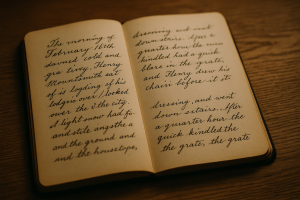 The morning of
February 16th
dawned cold and
gray. Henry
sat
of is of his
lodgin over looked
over the the city.
A light snow had
and still
and the ground and
and the housetops,
dressing and went
down stairs. After a
quarter hour the
kindled had a quick
blaze in the grate,
and Henry drew his
chair before it it.
dressing, and went
down stairs. After
a quarter hour the
quick kindled the
the grate, the grate